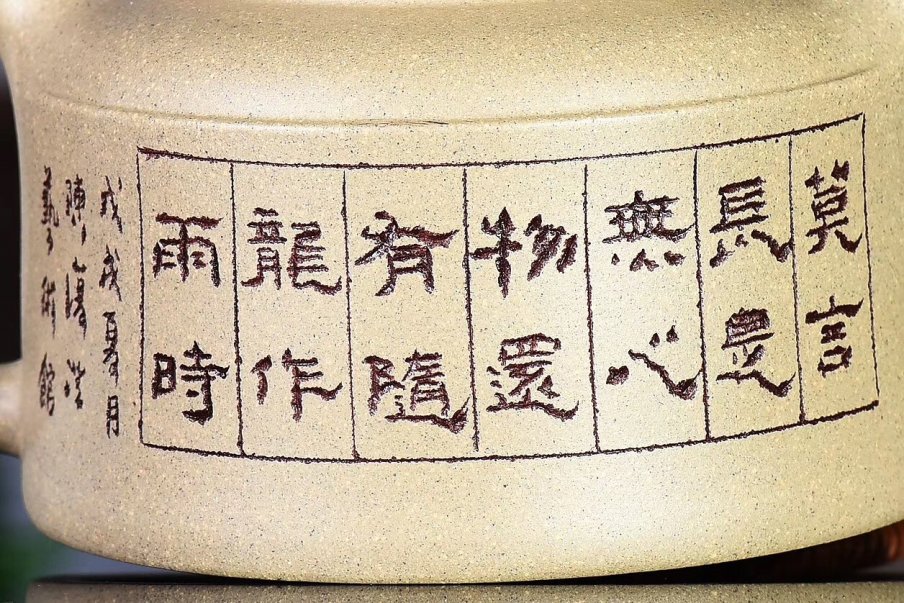 莫言
長是
無心
物還
有隨
龍作
雨時
戊戌夏月
藝術館